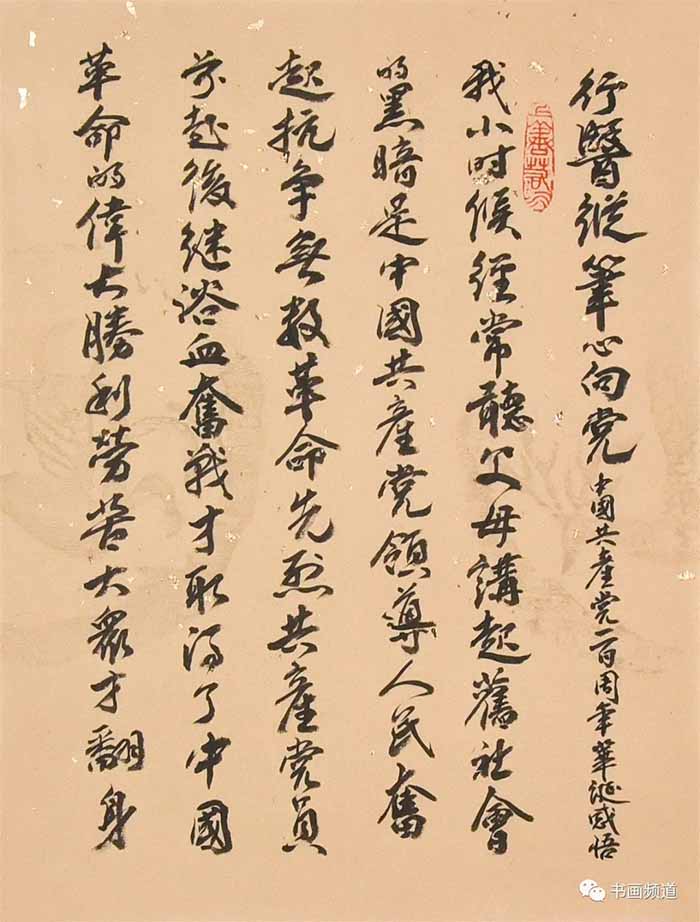 行醫縱筆心向党 中國共產党一百周年華誕感悟
我小时候經常聽父母講起舊社會
的黑暗是中國共產党領導人民奮
起抗争無数革命先烈共產党員
前赴後继浴血奮戰才取得了中國
革命的偉大勝利勞苦大衆才翻身
上善若水
书画频道